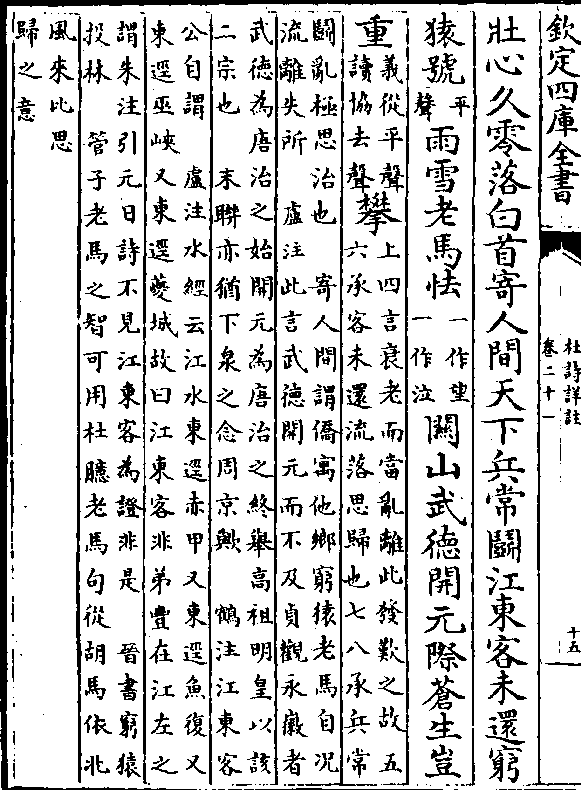 欽定四庫全書
杜詩詳註
卷二十一
十五
壯心久零落白首寄人間天下兵常鬭江東客未還窮
猿號平聲雨雪老馬怯一作望一作泣關山武德開元際蒼生豈
重義從平聲讀協去聲攀上四言衰老而當亂離此發歎之故五
六承客未還流落思歸也七八承兵常
鬭亂極思治也　寄人間謂僑寓他鄉窮猿老馬自况
流離失所　盧注此言武德開元而不及貞觀永徽者
武德為唐治之始開元為唐治之終舉高祖明皇以該
二宗也　末聯亦猶下泉之念周京歟　鶴注江東客
公自謂　盧注水經云江水東逕赤甲又東逕魚復又
東逕巫峽又東逕夔城故曰江東客非弟豐在江左之
謂朱注引元日詩不見江東客為證非是　晉書窮猿
投林　管子老馬之智可用杜臆老馬句從胡馬依北
風來比思
歸之意